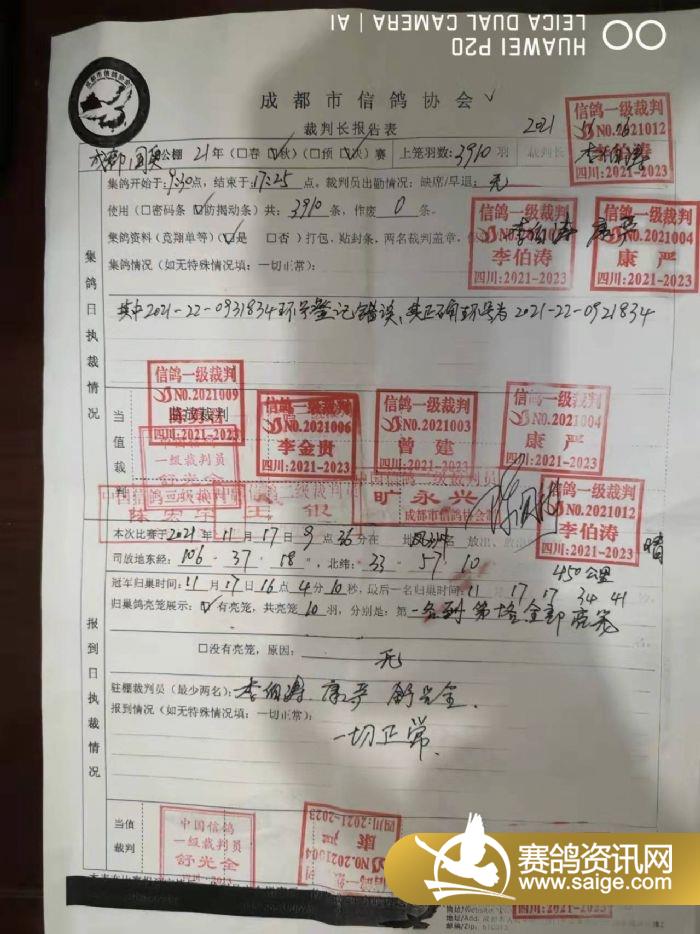 HUAWEI P20
LEICA DUAL CAMERA | AI
成都市信鸽协会
成都市信鸽协会
裁判长报告表
2021
信鸽一级裁判
NO.2021012
李伯涛
四川:2021-2023
成都 公棚 21年(□春 秋)(□预 决)赛 上笼羽数:3910羽 裁判长
集鸽开始于9:30点,结束于17:25点。裁判员出勤情况:缺席/早退:无
使用(□密码条 防揭动条)共:3910条,作废0条。
集鸽资料(竞翔单等)(是 □否)打包,贴封条,两名裁判盖章,
信鸽一级裁判
李伯涛
四川:2021-2023
信鸽一级裁判
NO.2021004
康严
四川:2021-2023
集鸽情况(如无特殊情况填:一切正常):
其中2021-22-0931834环号登记错误,其正确环号为2021-22-0921834
集鸽日执裁情况
当值裁判
信鸽一级裁判
NO.2021009
四川:2021-2023
信鸽一级裁判
NO.2021006
李金贵
四川:2021-2023
信鸽一级裁判
NO.2021003
曾建
四川:2021-2023
信鸽一级裁判
NO.2021004
康严
四川:2021-2023
一级裁判员
舒光全
旷永兴
成都市信鸽协会
信鸽一级裁判
NO.2021012
李伯涛
四川:2021-2023
本次比赛于2021年11月17日9点36分在
晴
司放地东经:106·37·18",北纬:33·57·10
450公里
冠军归巢时间:11月17日16点4分10秒,最后一名归巢时间:11 17 17 34 41
归巢鸽亮笼展示: 有亮笼,共亮笼10羽,分别是:第一名到第拾全部亮笼
□没有亮笼,原因: 无
驻棚裁判员(最少两名):李伯涛 康严 舒光全.
报到情况(如无特殊情况填:一切正常):
一切正常.
报到日执裁情况
当值裁判
中国信鸽
一级裁判员
舒光全
四川:2021-2023
康严
NO.2021004
四川:2021-2023
赛鸽资讯网
www.saige.com